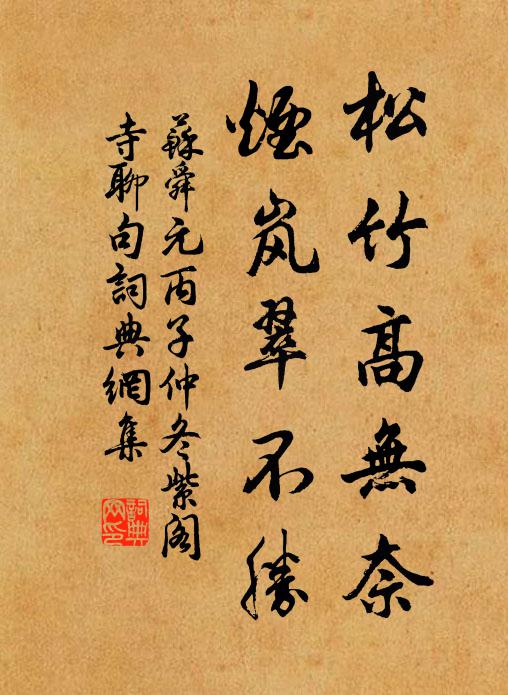 松竹高無奈
煙岚翠不勝
蘇舜元丙子仲冬紫阁
寺聊句詞典網集
詞典
网印